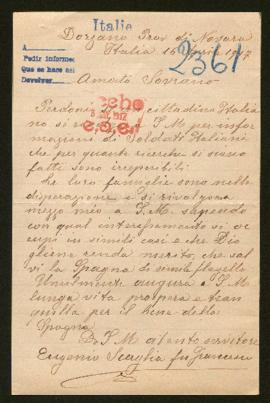 Italia
Dorzano Prov di Novara
Italia 16 1917
2361
A
Pedir informes
Que se hace
Devolver
Amato Sovrano
Perdoni cittadino Italia
no si S. M per infor
mazioni di Soldati Italiani
che per quante ricerche si siano
fatte sono irreperibili:
Le loro famiglie sono nella
disperazione e si rivolgono
mezzo mio a S. M. sapendo
con qual interessamento si oc
cupa in simili casi e che Dio
gliene renda merito, che sal
vi la Spagna di simile flagello
Umilmente augura a S. M
lunga vita prospera e tran
quilla per il bene della
Spagna
Di S. M servitore
Eugenio Scaglia fu Francesco